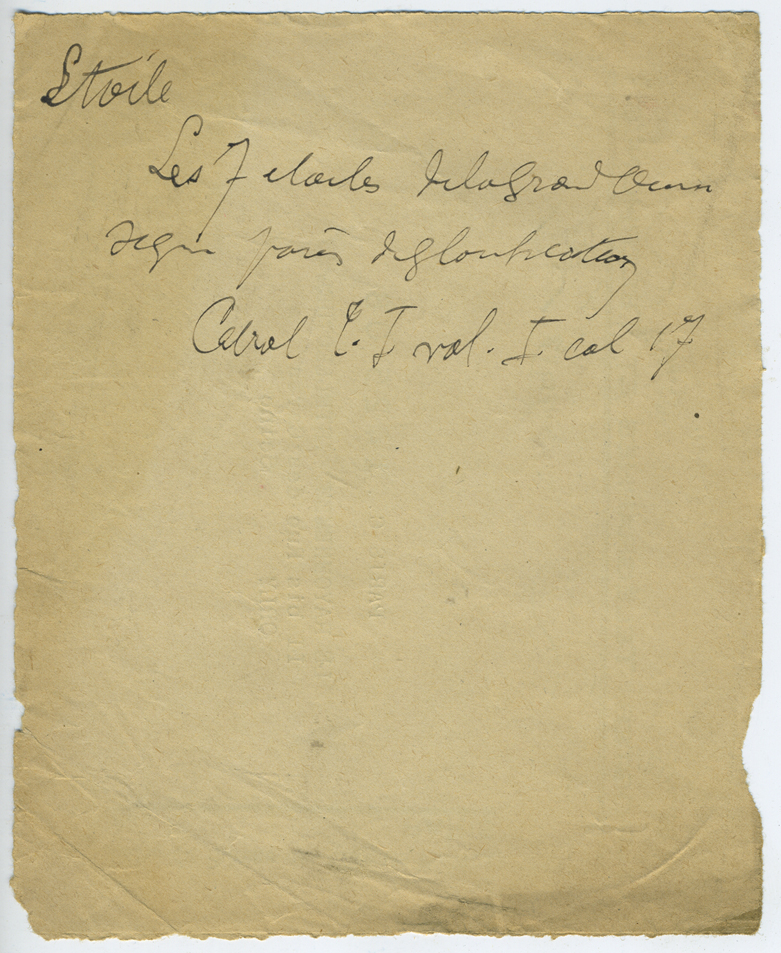 Etoile
Les 7 etoiles de la Grand Ours
signe païen de glorification
Cabrol T. I vol. I. col 17